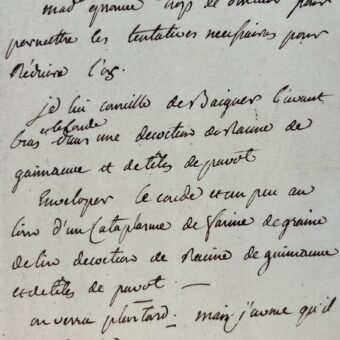 mad éprouve trop de douleur pour
permettre les tentatives necessaires pour
réduire l'os.
je lui conseille de Baigner l'avant
et le coude
bras dans une decoction de Racine de
guimauve et de têtes de pavot
Enveloper le coude et un peu au
d'un Cataplasme de farine de graine
de lin decoction de racine de guimauve
et de têtes de pavot. —
on verra plus tard. mais j'avoue qu'il